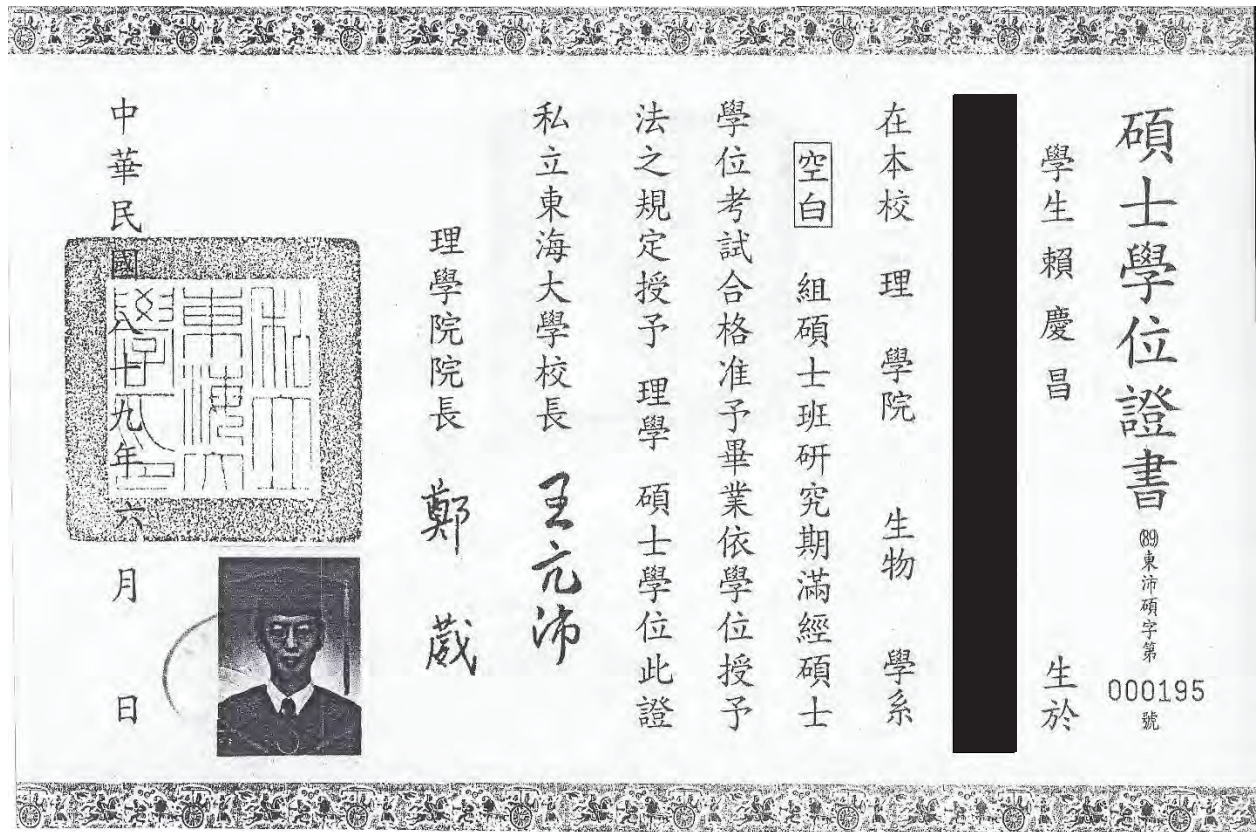 碩士學位證書
(89)東沛碩字第000195號
學生賴慶昌 生於
在本校 理 學院 生物 學系
空白 組碩士班研究期滿經碩士
學位考試合格准予畢業依學位授予
法之規定授予 理學 碩士學位此證
私立東海大學校長 王亢沛
理學院院長 鄭 葳
中華民國八十九年六月 日
私立東海大學